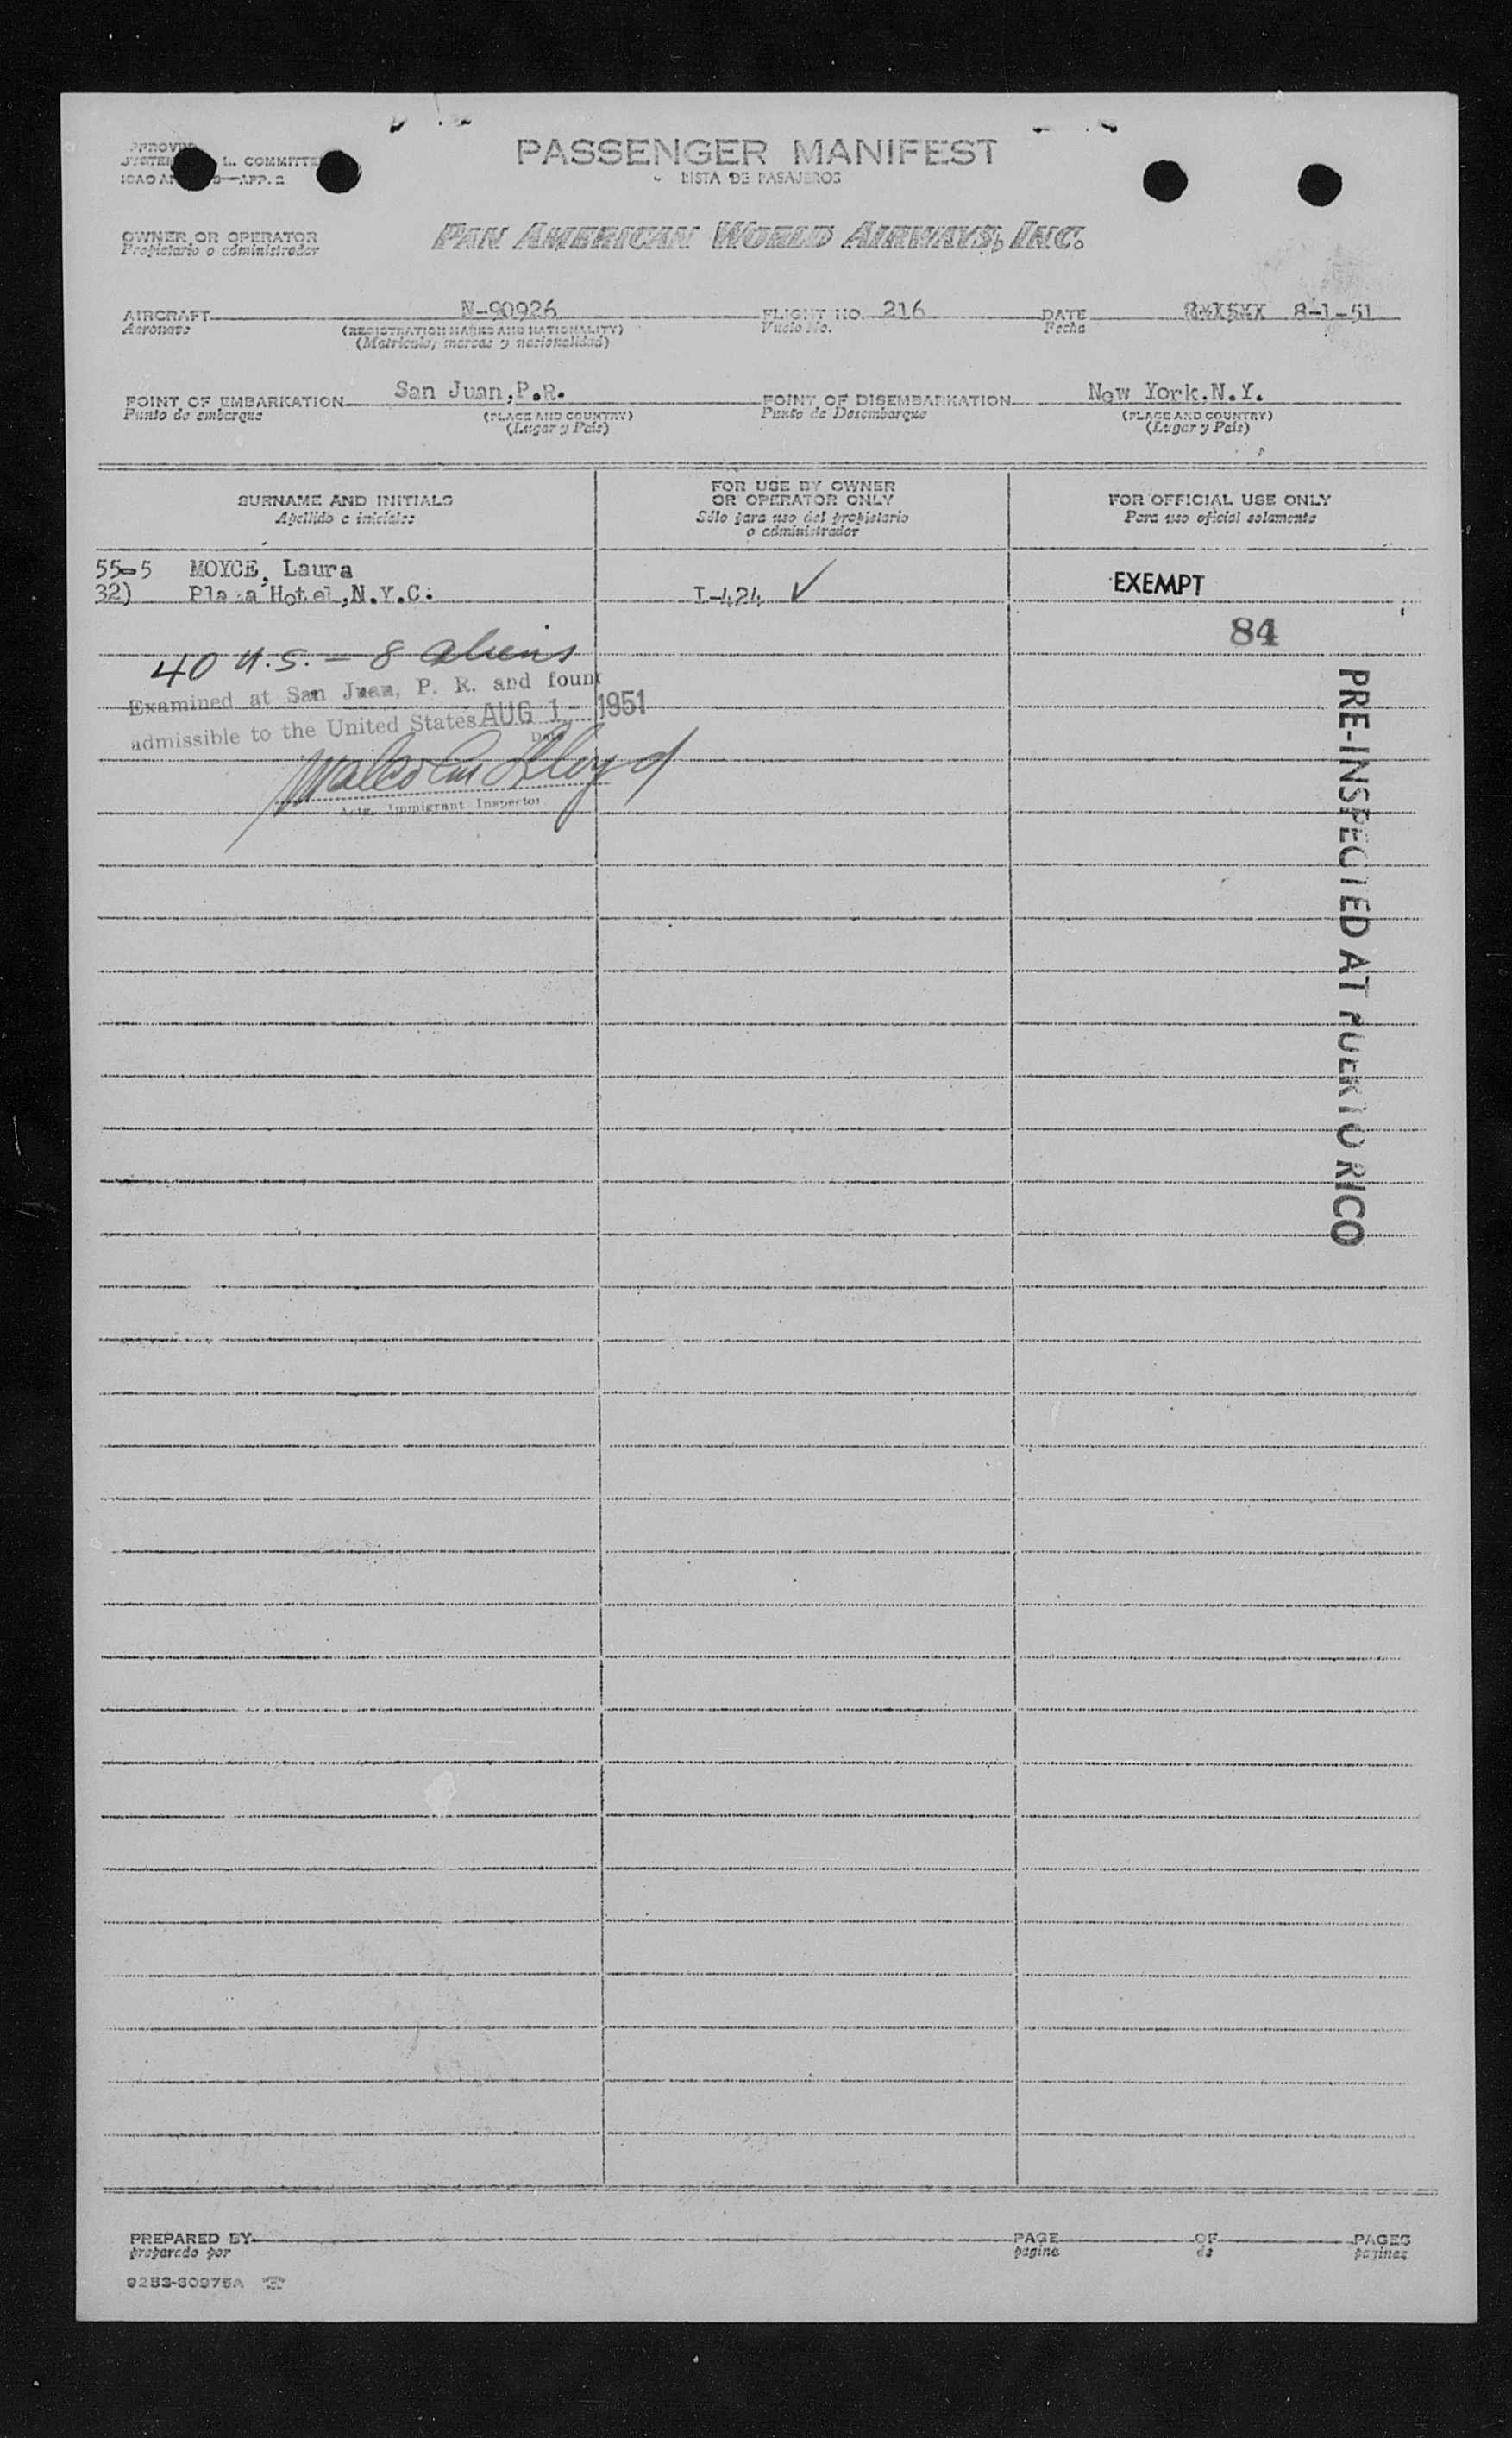 PASSENGER MANIFEST
LISTA DE PASAJEROS
L. COMMITTE
APP. 2
OWNER OR OPERATOR
Propietario o administrador
PAN AMERICAN WORLD AIRWAYS, INC.
AIRCRAFT N-90926 FLIGHT NO. 216 DATE 8-1-51
Aeronave (REGISTRATION MARKS AND NATIONALITY) Vuelo No. Fecha
(Matricula, marcas y nacionalidad)
POINT OF EMBARKATION San Juan,P.R. POINT OF DISEMBARKATION New York,N.Y.
Punto de embarque (PLACE AND COUNTRY) Punto de Desembarque (PLACE AND COUNTRY)
(Lugar y Pais) (Lugar y Pais)
SURNAME AND INITIALS
Apellido e iniciales
FOR USE BY OWNER
OR OPERATOR ONLY
Sólo para uso del propietario
o administrador
FOR OFFICIAL USE ONLY
Para uso oficial solamente
55-5 MOYCE, Laura
32) Plaza Hotel,N.Y.C. I-424 ✓ EXEMPT
84
40 U.S. = 8 aliens
Examined at San Juan, P. R. and found
admissible to the United States AUG 1 - 1951
Date
Malcolm Lloyd
Actg. Immigrant Inspector
PRE-INSPECTED AT PUERTO RICO
PREPARED BY PAGE OF PAGES
preparado por pagina de paginas
9253-60975A